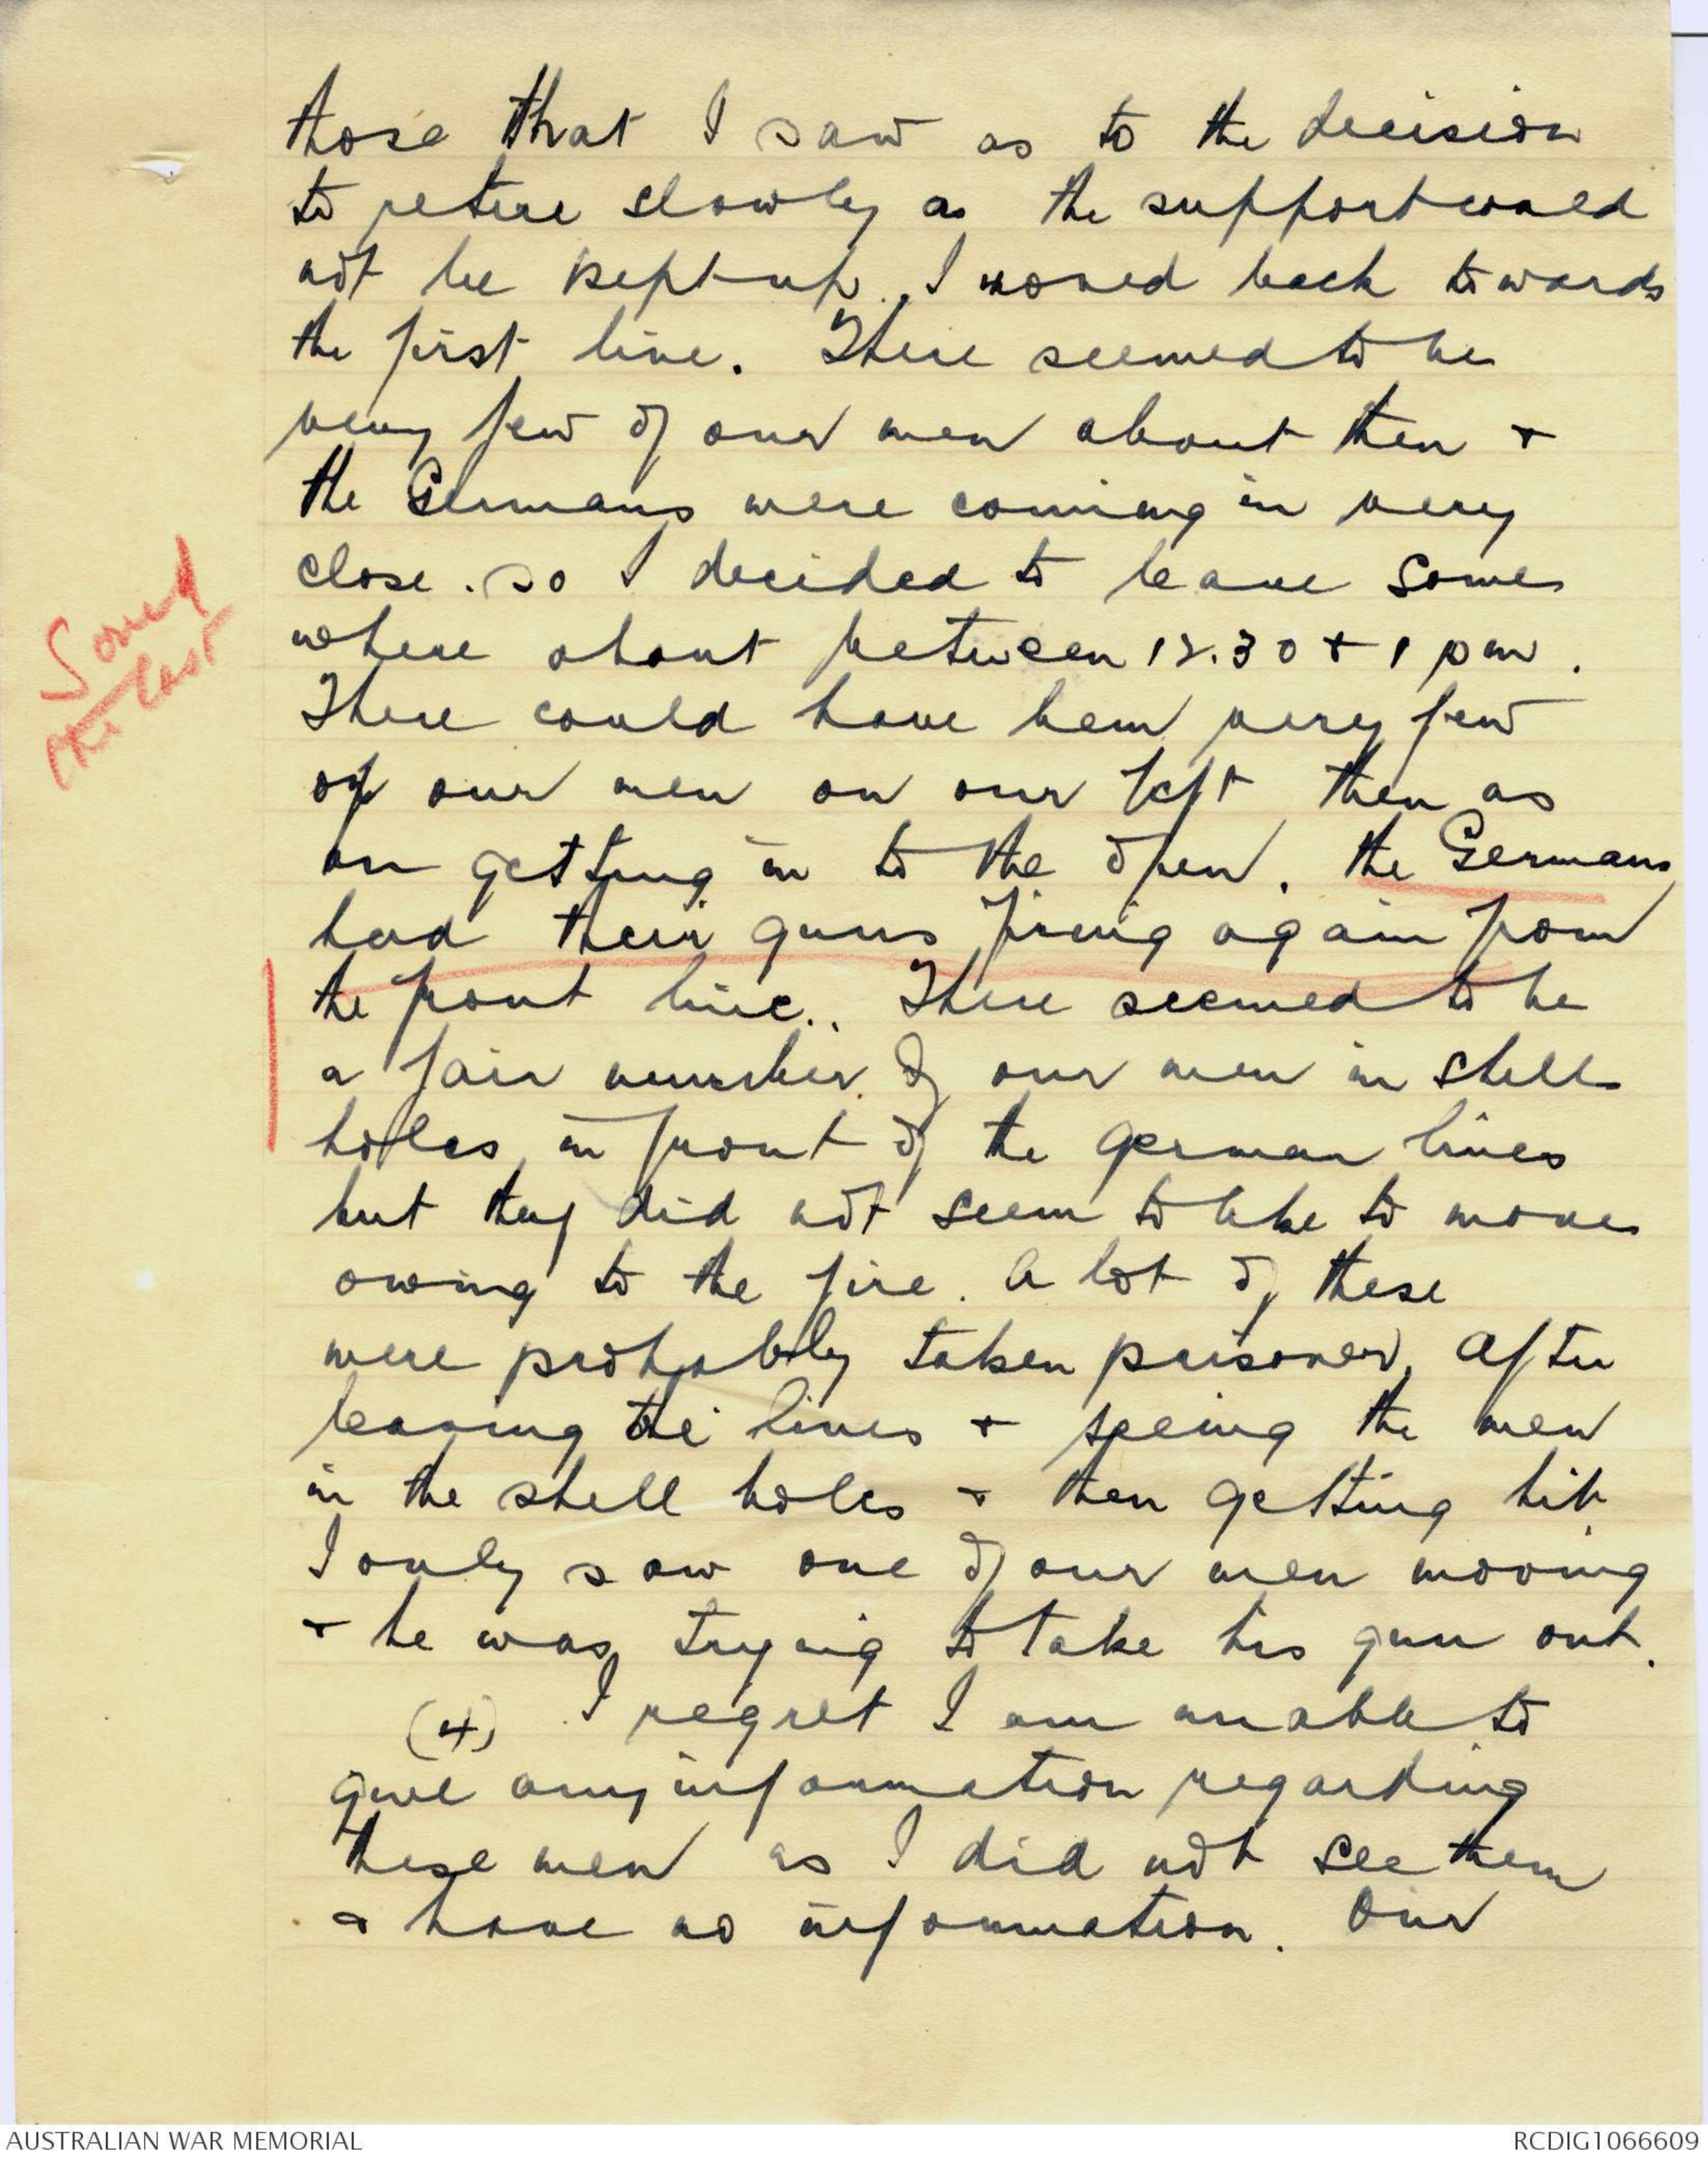 those that I saw as to the decision
to retire slowly as the support could
not be kept up. I moved back towards
the first line. There seemed to be
very few of our men about then +
the Germans were coming in very
close. so I decided to leave some
where about between 12.30 + 1 pm.
There could have been very few
of our men on our left then as
on getting in to the open, the Germans
had their guns firing again from
the front line.. There seemed to be
a fair number of our men in shell
holes in front of the German lines
but they did not seem to like to move
owing to the fire. A lot of these
were probably taken prisoner, After
leaving the lines + seeing the men
in the shell holes + then getting hit
I only saw one of our men moving
+ he was trying to take his gun out.
(4) I regret I am unable to
give any information regarding
these men as I did not see them
+ have no information. Our
last
AUSTRALIAN WAR MEMORIAL
RCDIG1066609